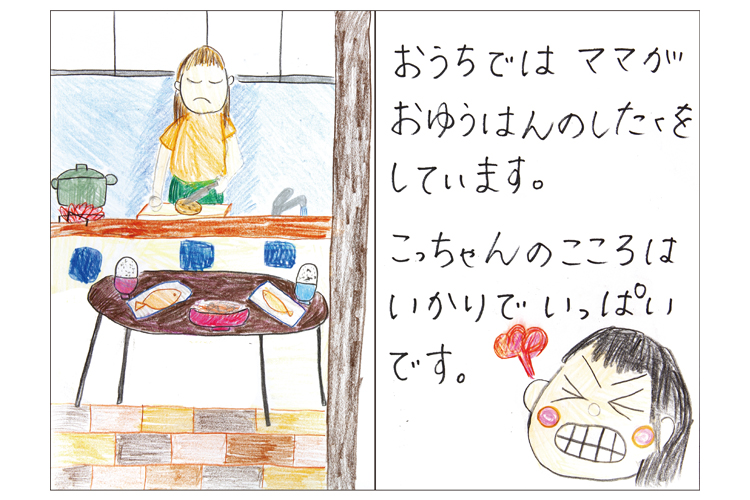 おうちでは ママが
おゆうはんのしたくを
しています。
こっちゃんのこころは
いかりでいっぱい
です。